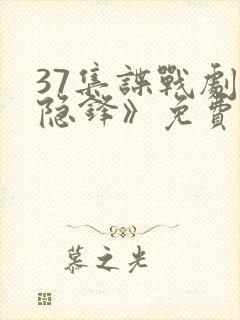 37集諜戰劇
隐鋒》免費
慕之光